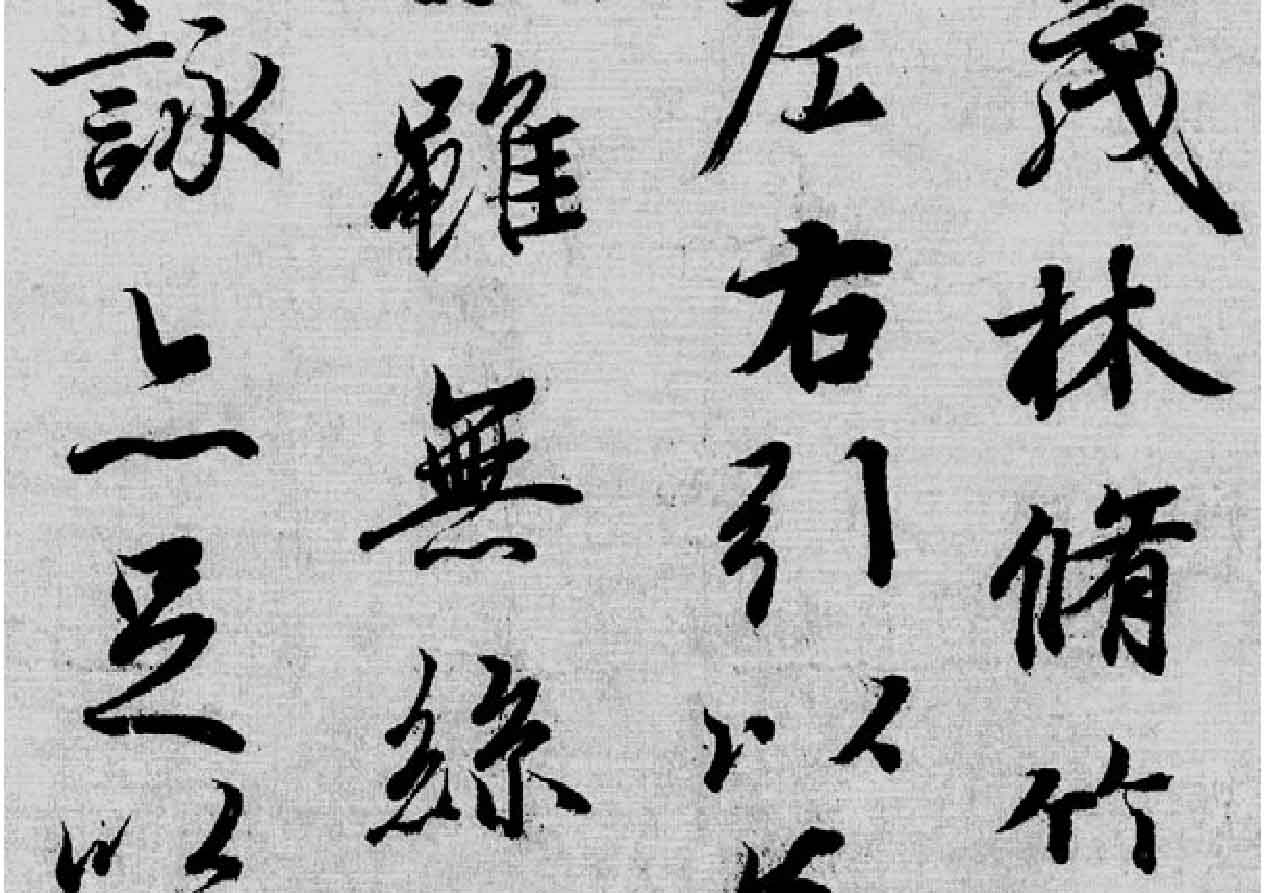 茂林脩竹
左右引以
雖無絲
詠亦足以